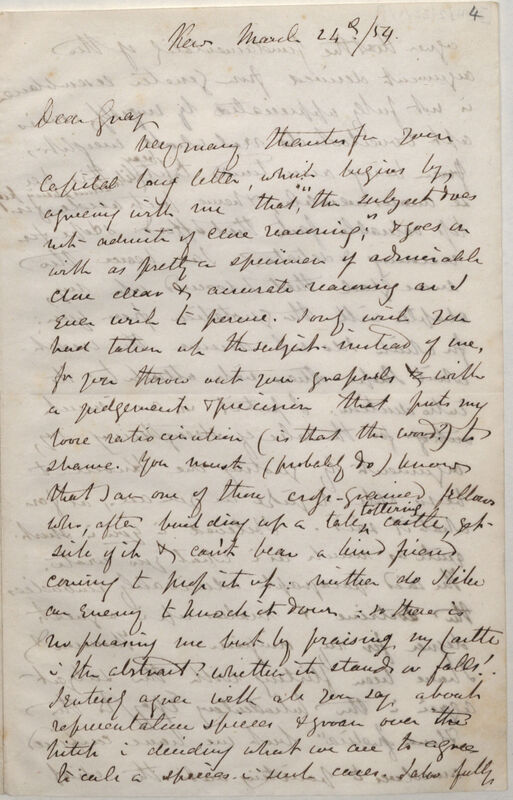 4
Kew March 24th/54.
Dear Gray
Very many thanks for your
capital long letter, which begins by
agreeing with me that, "the subject does
not admit of close reasoning," & goes on
with as pretty a specimen of admirable
close clear & accurate reasoning as I
ever wish to peruse. I only wish you
had taken up the subject instead of me,
for you throw out your grapnels with
a judgement & precision that puts my
loose ratiocination (is that the word?) to
shame. You must (probably do) know
that I am one of those cross-grained fellows
who, after building up a tall, tottering castle, get
sick of it & can't bear a kind friend
coming to prop it up: neither do I like
an enemy to knock it down: so there is
no pleasing me but by praising my Castle
in the abstract! whether it stands or falls!
I entirely agree with all you say about
representative species & groan over the
hitch in deciding what we are to agree
to call a species in such cases. I also fully